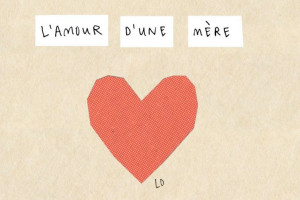 L'AMOUR D'UNE MÈRE
LD